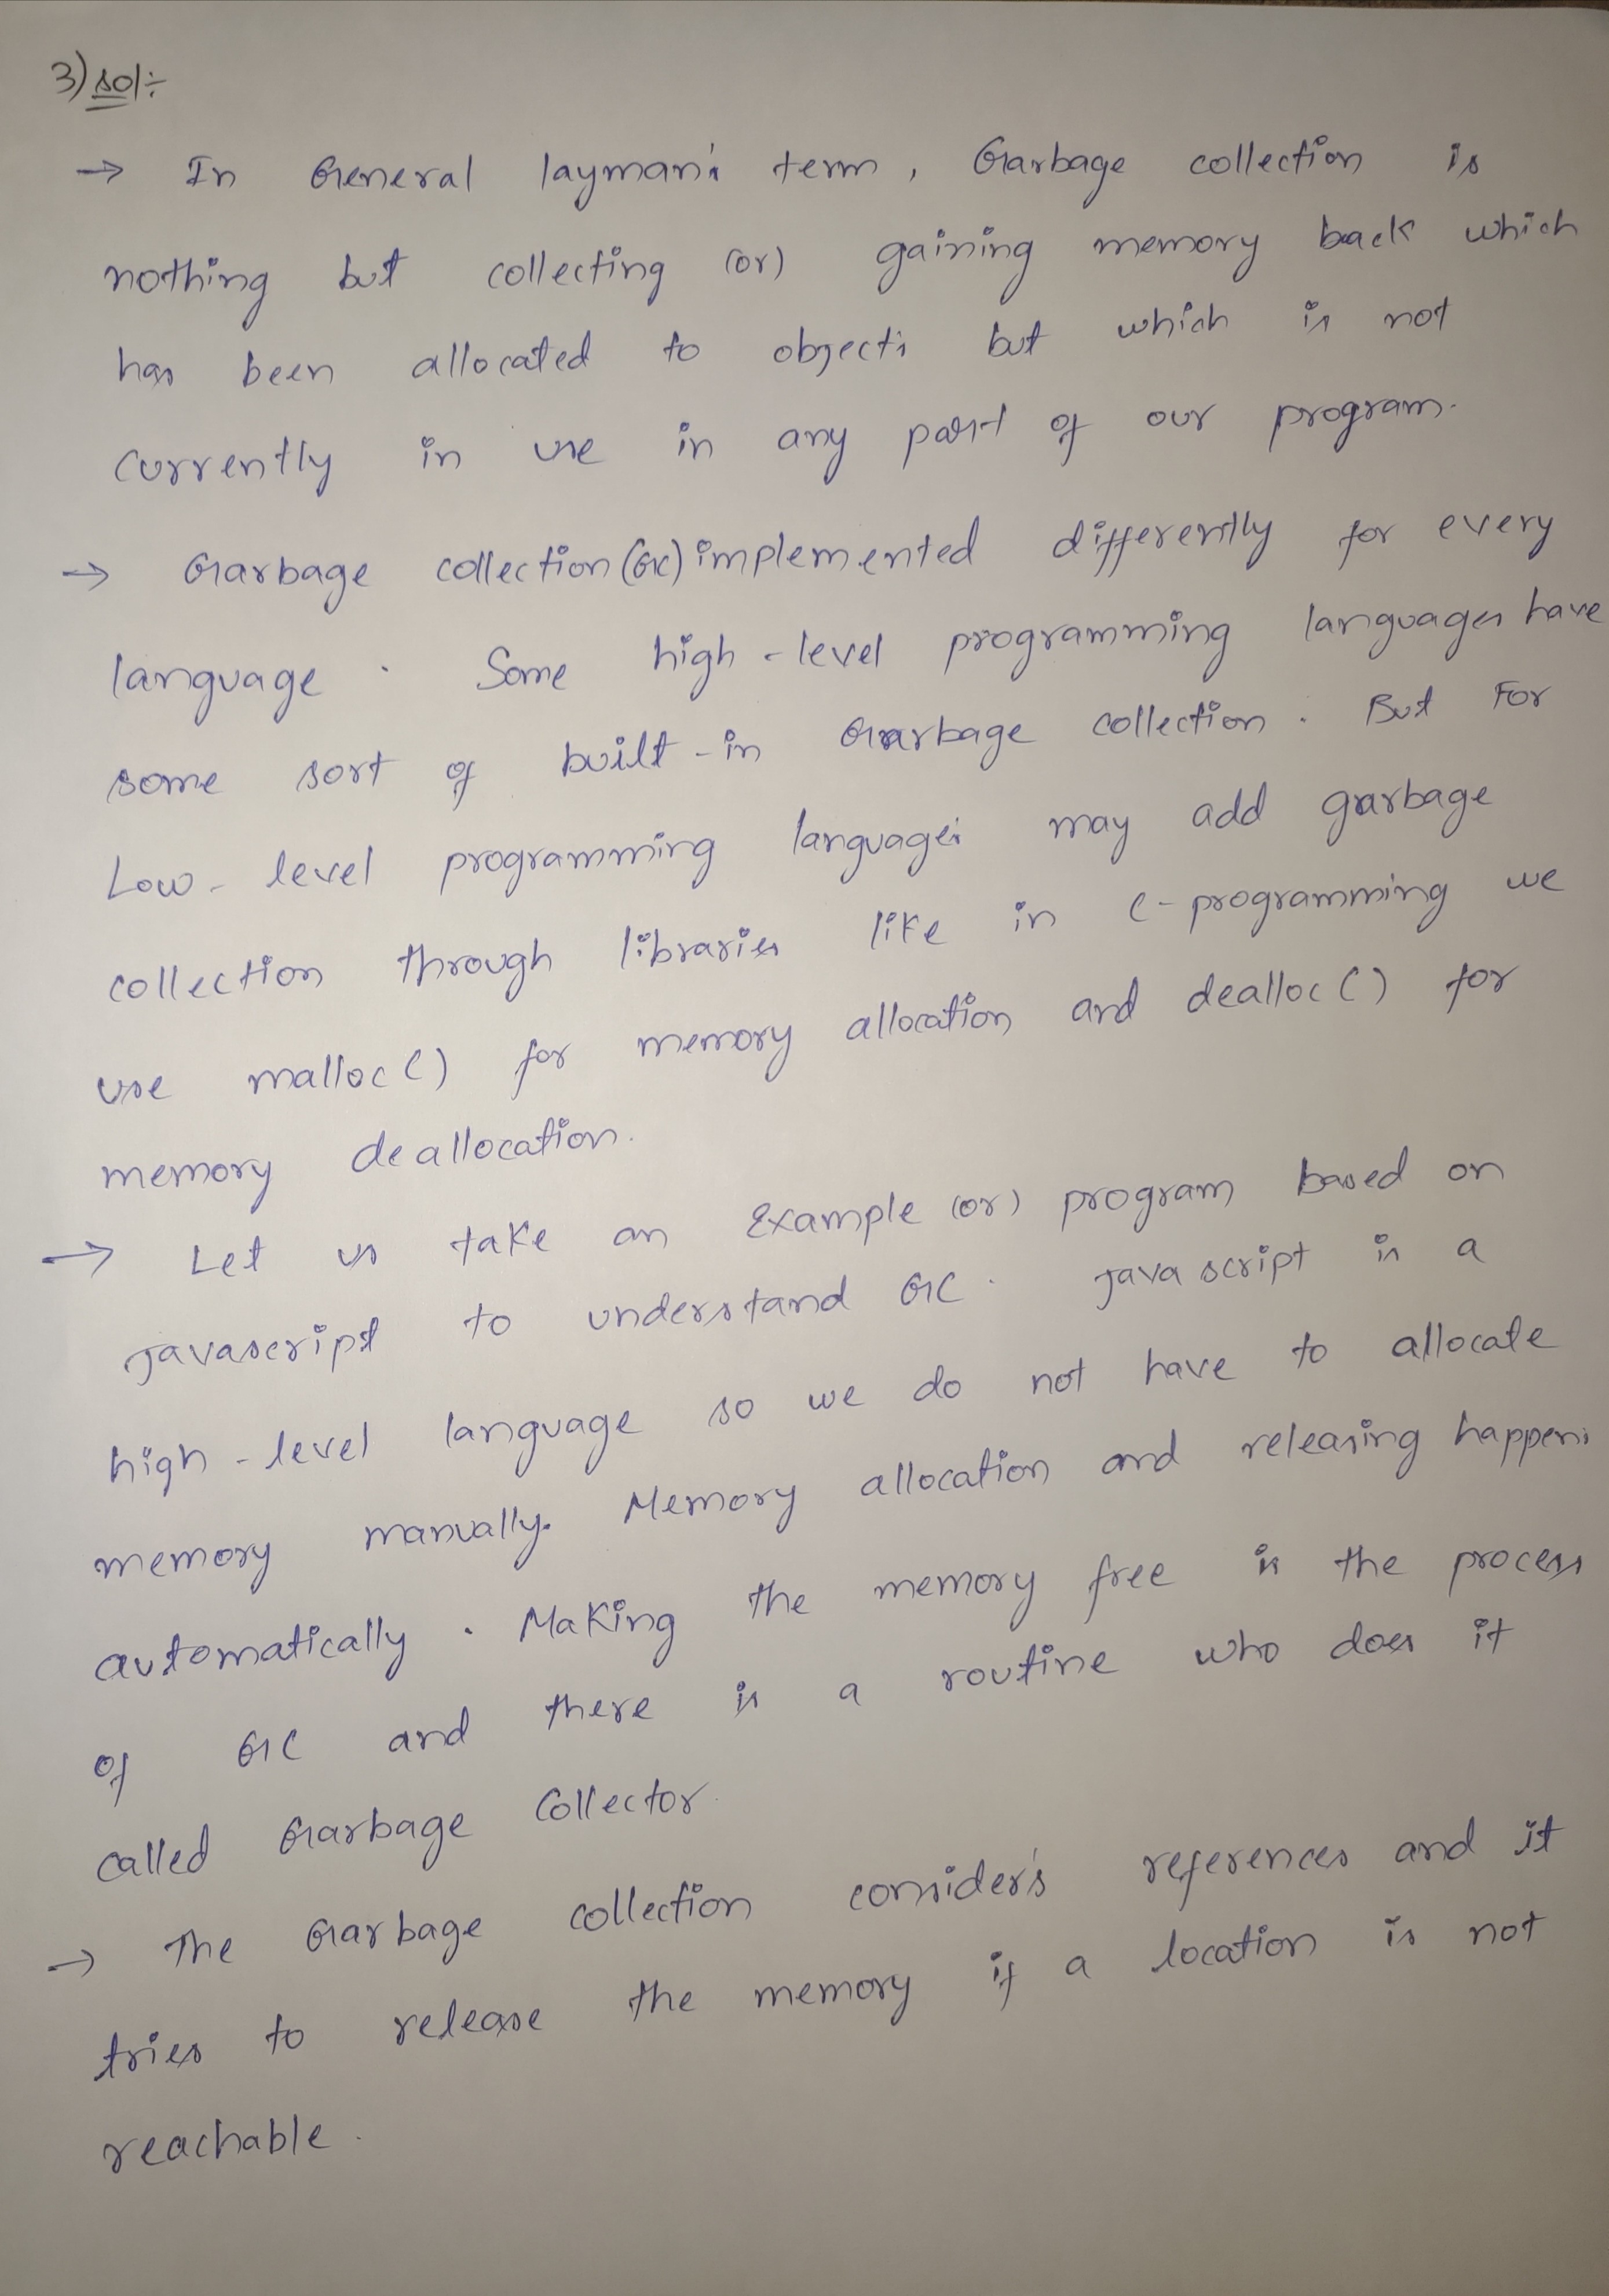 3) sol:-
→ In General layman's term, Garbage collection is
nothing but collecting (or) gaining memory back which
has been allocated to objects but which is not
currently in use in any part of our program.
→ Garbage collection (GC) implemented differently for every
language. Some high-level programming languages have
some sort of built-in Garbage collection. But For
Low-level programming languages may add garbage
collection through libraries like in C-programming we
use malloc() for memory allocation and dealloc() for
memory deallocation.
→ Let us take an Example (or) program based on
Javascript to understand GC. Java script is a
high-level language so we do not have to allocate
memory manually. Memory allocation and releasing happens
automatically. Making the memory free is the process
of GC and there is a routine who does it
called Garbage Collector.
→ The Garbage collection consider's references and it
tries to release the memory if a location is not
reachable.